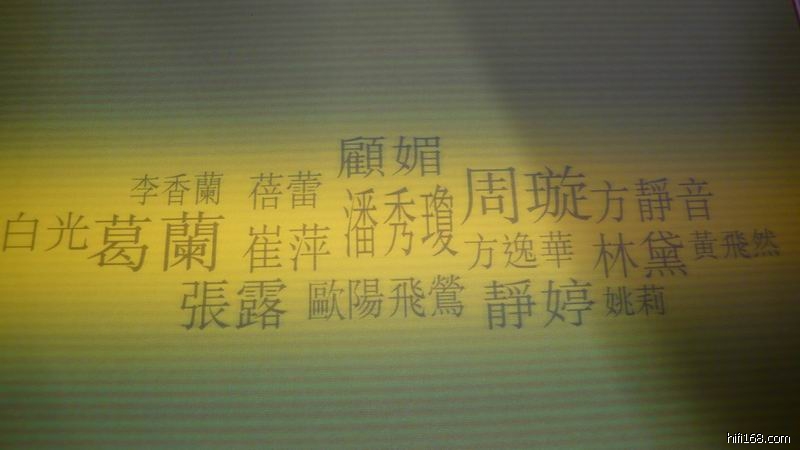 顧媚
李香蘭 蓓蕾 潘秀瓊 周璇 方靜音
白光 葛蘭 崔萍 方逸華 林黛 黃飛然
張露 歐陽飛鶯 靜婷 姚莉
hifi168.com